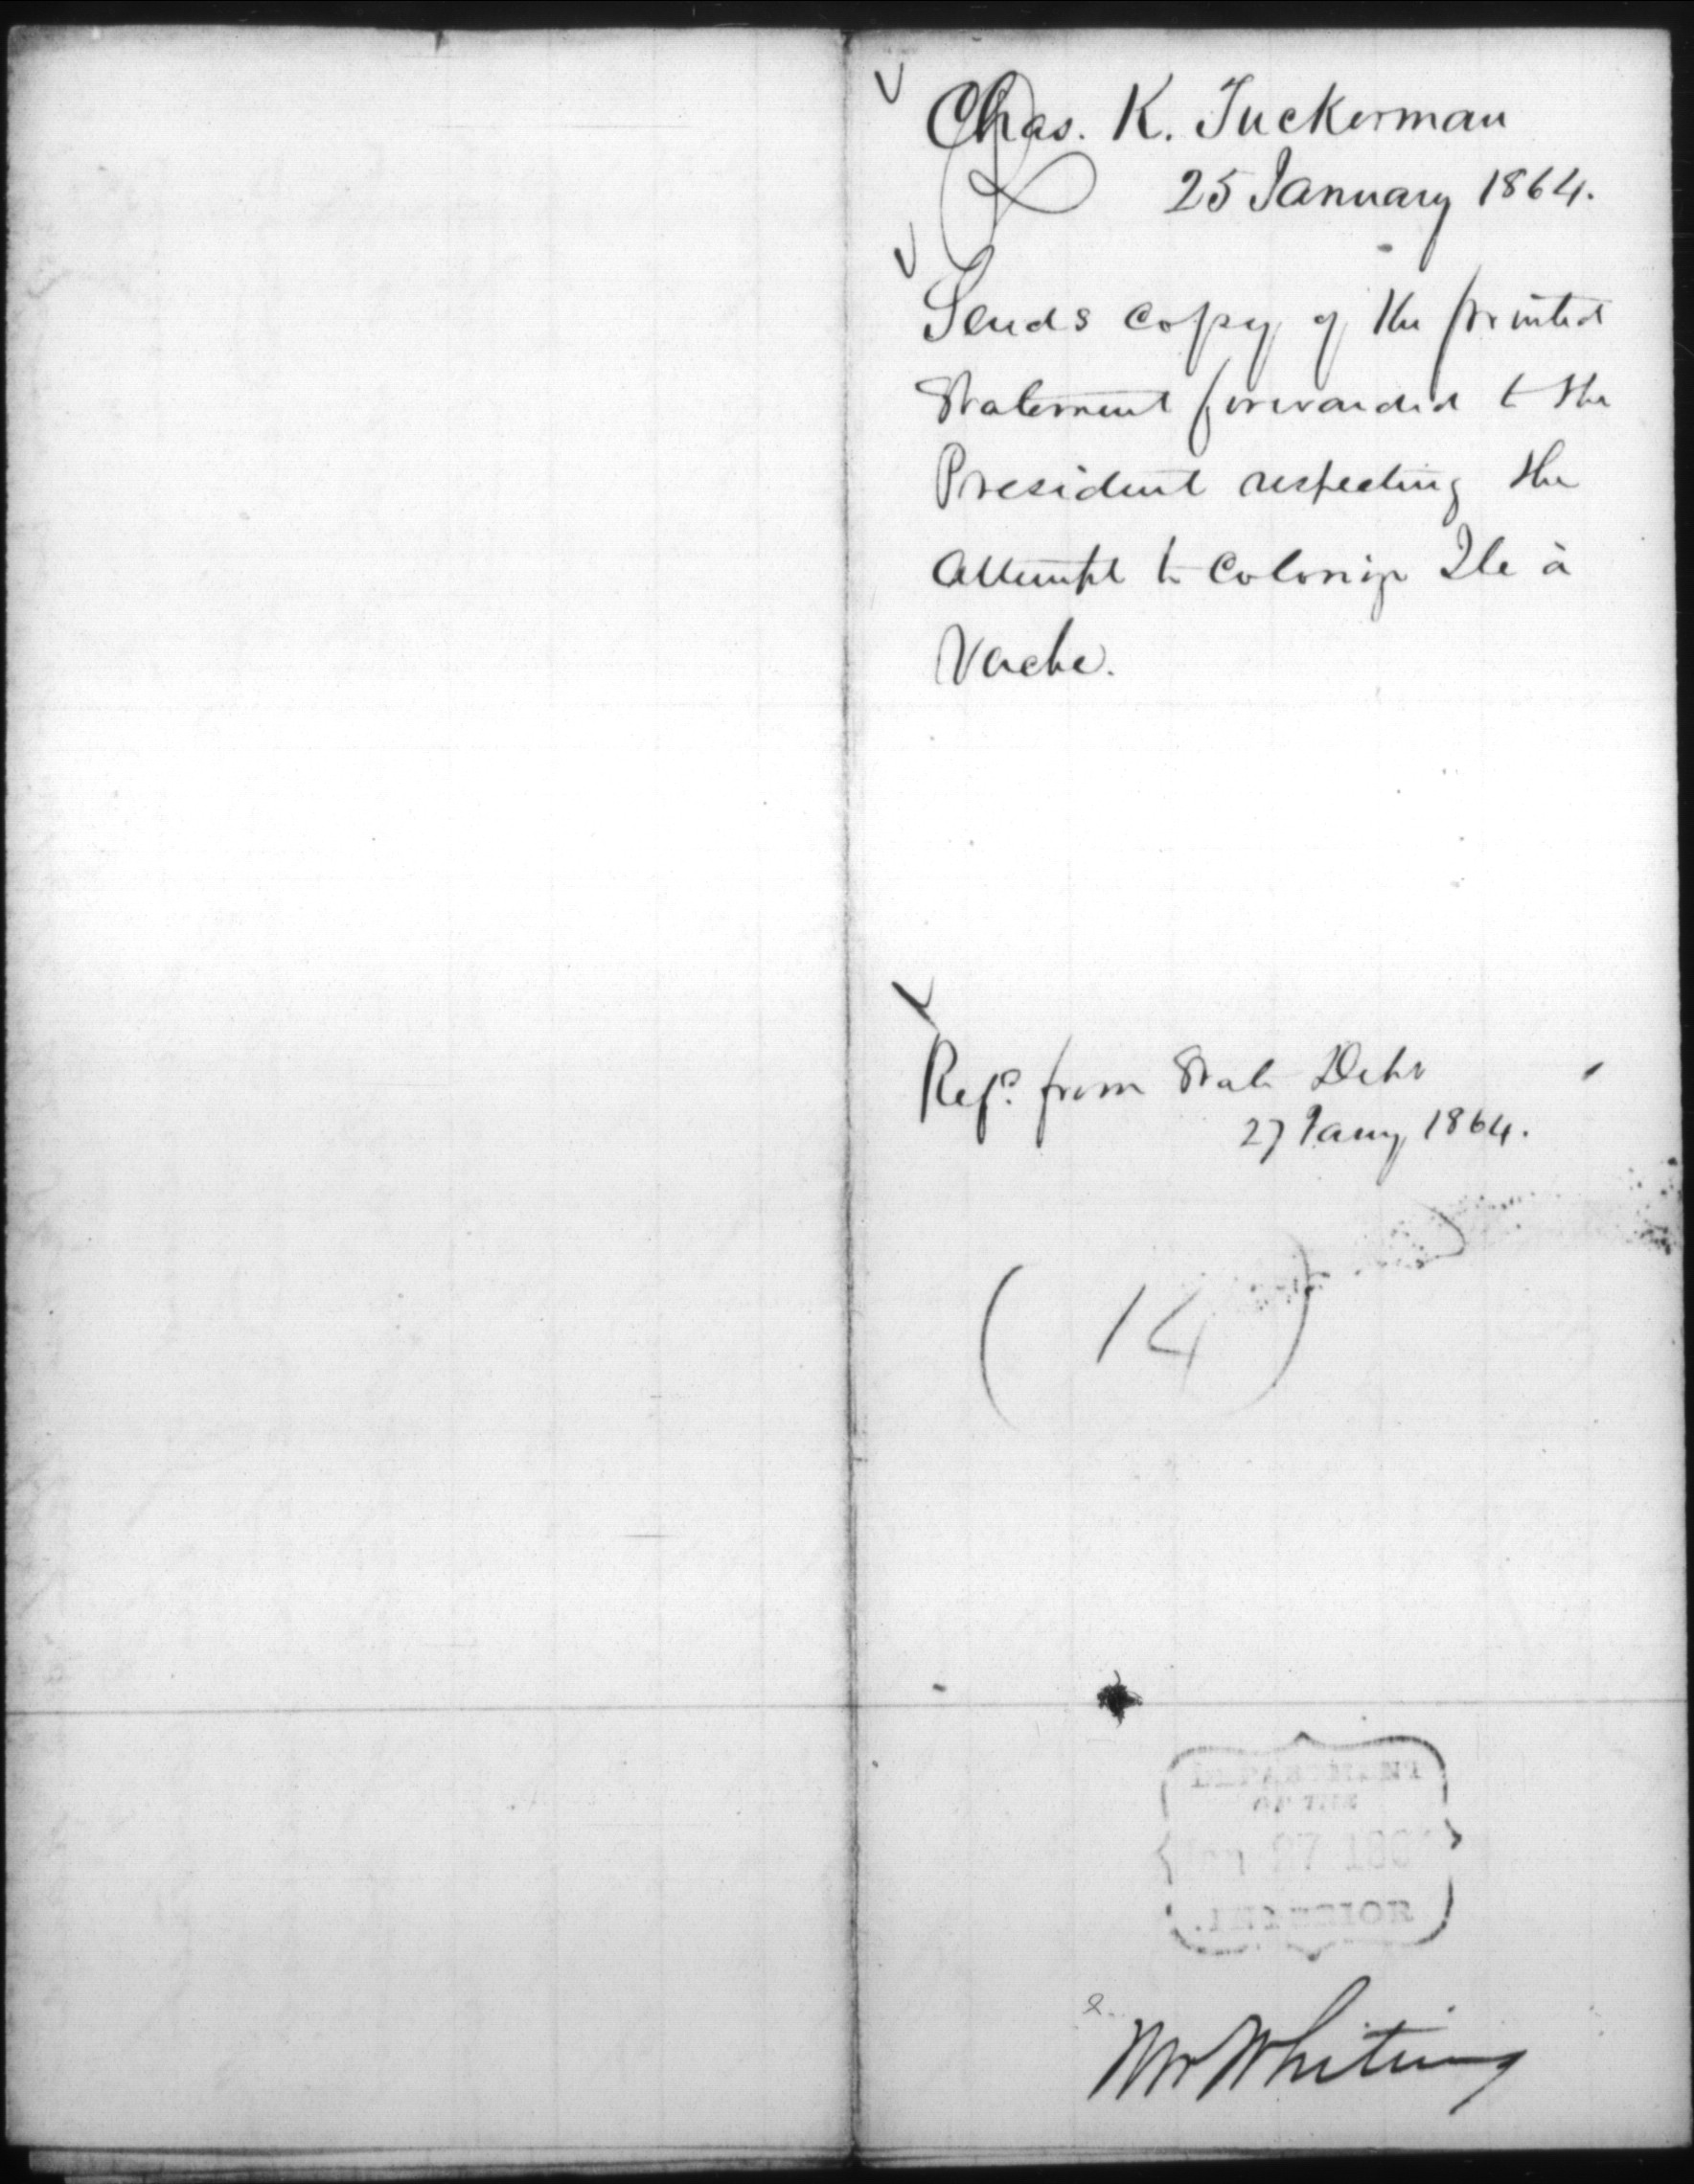 Chas. K. Tuckerman
25 January 1864.
Sends copy of the printed
Statement forwarded to the
President respecting the
attempt to Colonize Ile à
Vache.
Refd. from State Dept
27 Jany 1864.
( 14 )
DEPARTMENT
OF THE
Jan 27 186
INTERIOR
Mr Whiting